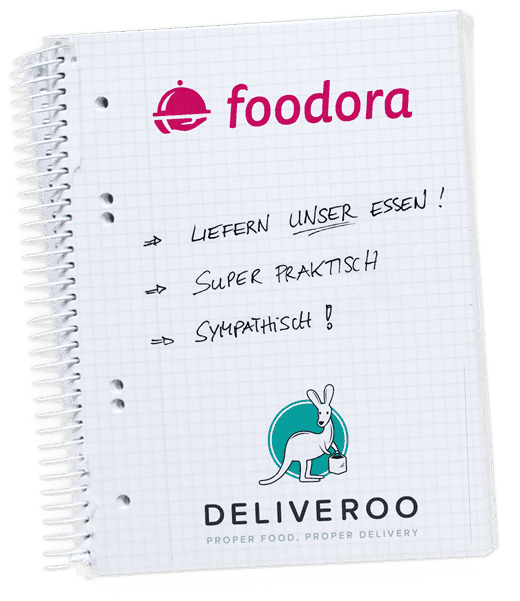 foodora
⇒ LIEFERN UNSER ESSEN!
⇒ SUPER PRAKTISCH
⇒ SYMPATHISCH!
DELIVEROO
PROPER FOOD, PROPER DELIVERY